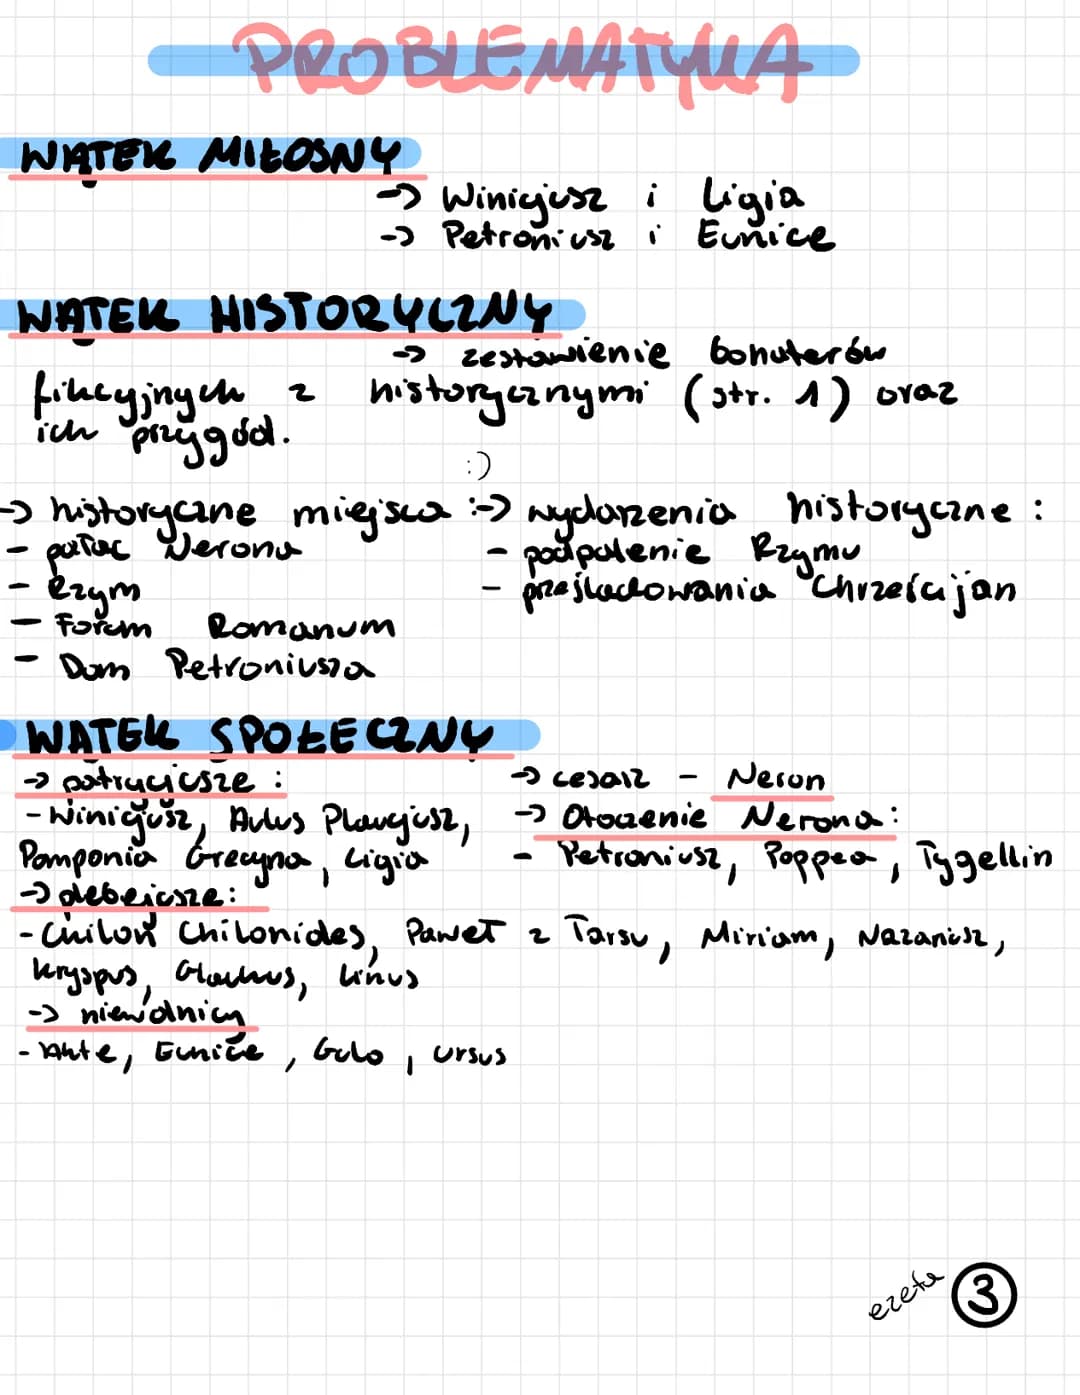 PROBLEMATYKA
WĄTEK MIŁOSNY
-> Winicjusz i Ligia
-> Petroniusz i Eunice
WĄTEK HISTORYCZNY
-> zestawienie bohaterów
fikcyjnych z historycznymi (str. 1) oraz
ich przygód.
:)
-> historyczne miejsca :
- pałac Nerona
- Rzym
- Forum Romanum
- Dom Petroniusza
-> wydarzenia historyczne :
- podpalenie Rzymu
- prześladowania Chrześcijan
WĄTEK SPOŁECZNY
-> patrycjusze :
- Winicjusz, Aulus Plaucjusz,
Pomponia Grecyna, Ligia
-> cesarz - Neron
-> Otoczenie Nerona :
- Petroniusz, Poppea, Tygellin
-> plebejusze :
- Chilon Chilonides, Paweł z Tarsu, Miriam, Nazariusz,
Kryspus, Glaukus, Linus
-> niewolnicy
- Akte, Eunice, Gulo, Ursus
ezefa
3